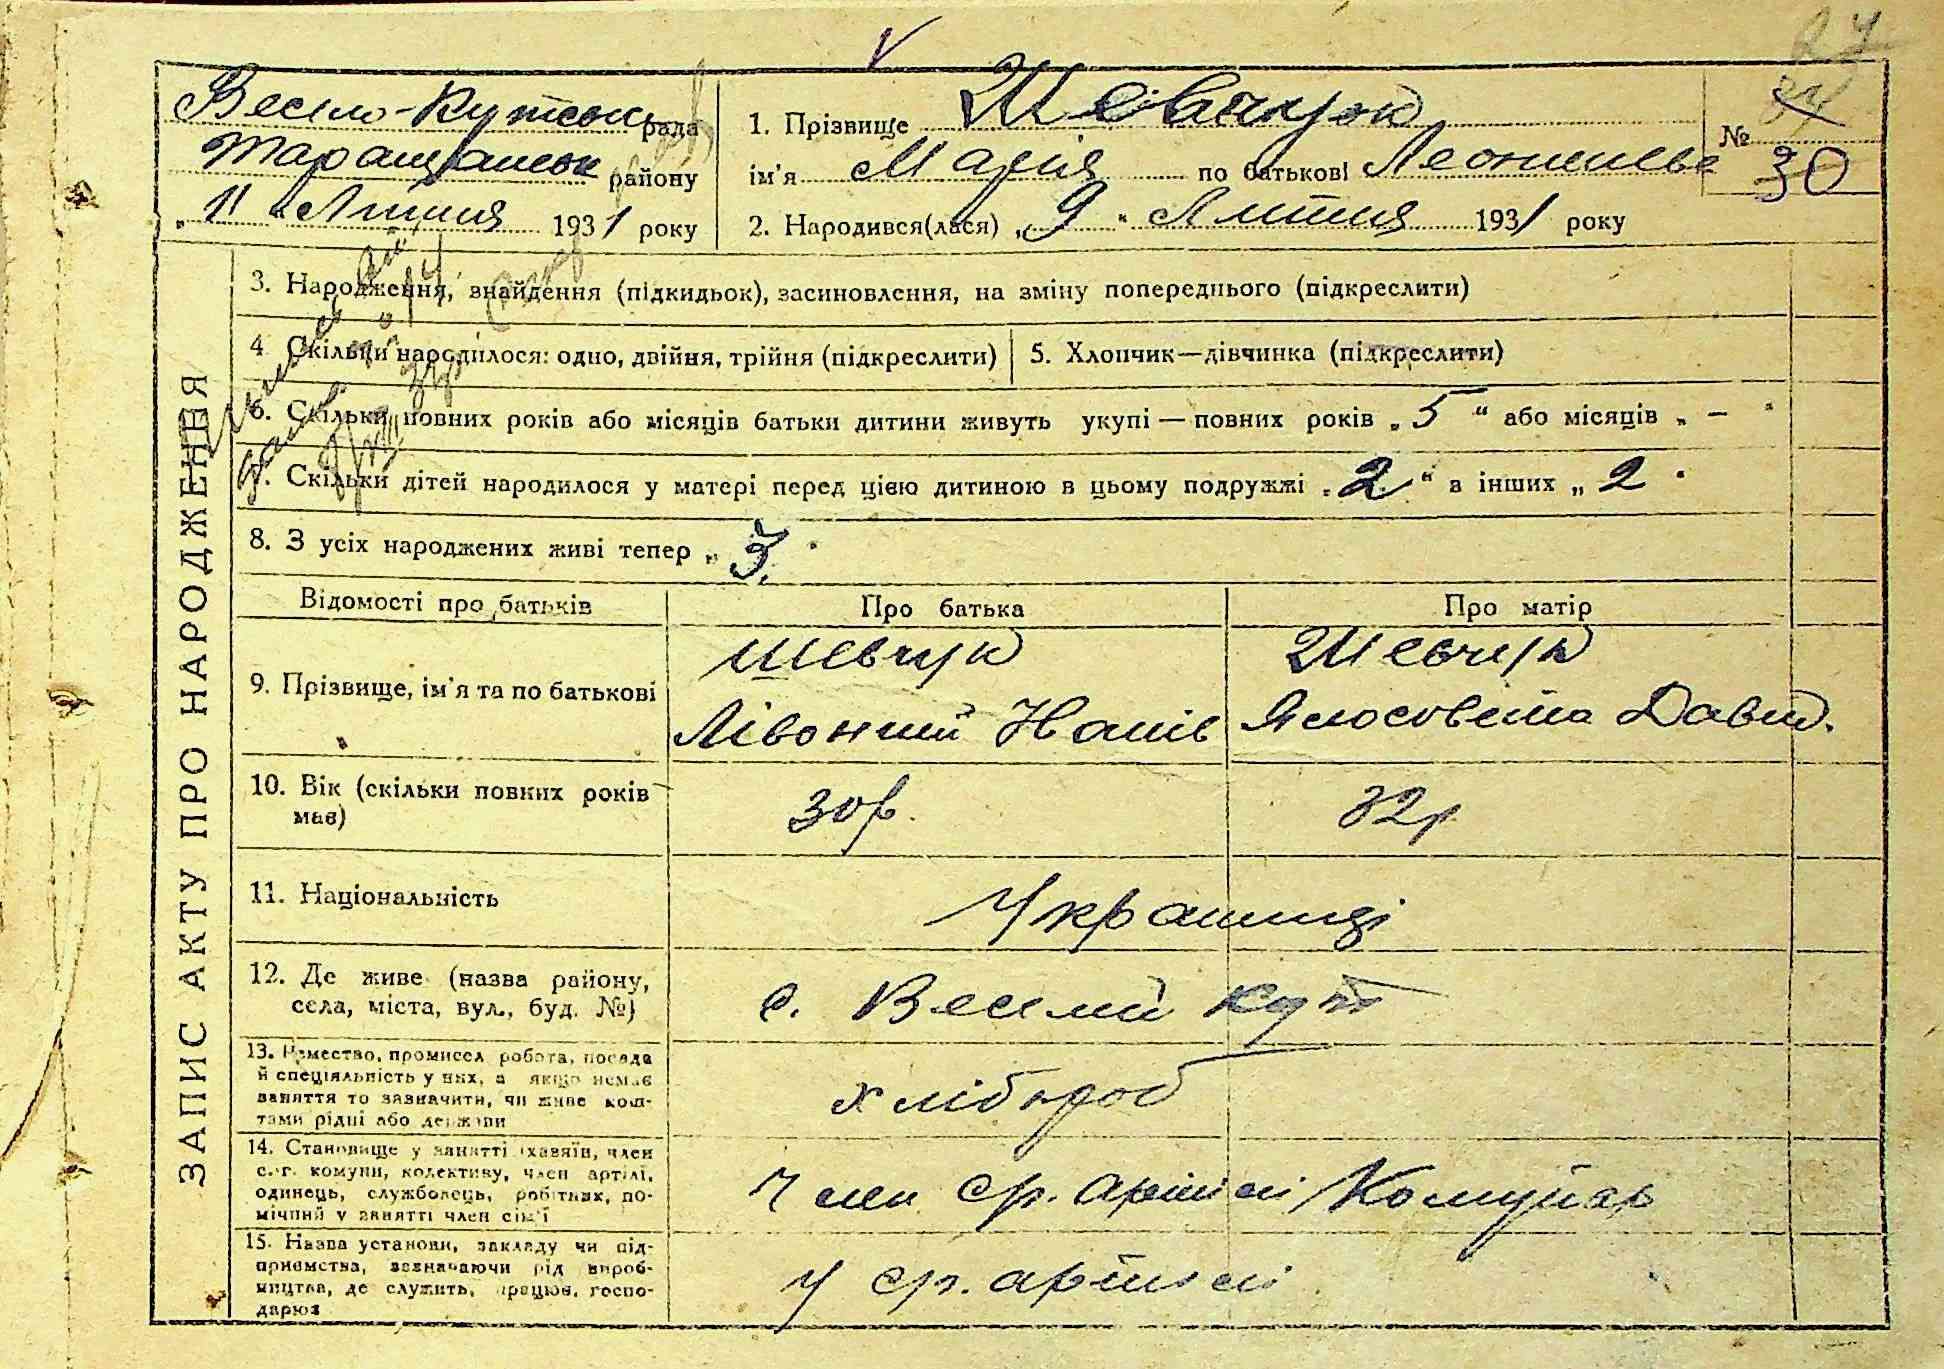 24
34
Весело-Кутськ рада
Таращанськ району
„11“ Липня 1931 року
1. Прізвище Шевчук
ім'я Марія по батькові Леонтьевна
2. Народився(лася) „9“ Липня 1931 року
№ 30
ЗАПИС АКТУ ПРО НАРОДЖЕННЯ
3. Народження, знайдення (підкидьок), засиновлення, на зміну попереднього (підкреслити)
4 Скільки народилося: одно, двійня, трійня (підкреслити)
5. Хлопчик—дівчинка (підкреслити)
6. Скільки повних років або місяців батьки дитини живуть укупі — повних років „5“ або місяців „-“
7. Скільки дітей народилося у матері перед цією дитиною в цьому подружжі „2“ в інших „2
8. З усіх народжених живі тепер „3.
Відомості про батьків
Про батька
Про матір
9. Прізвище, ім'я та по батькові
Шевчук
Лівонтий
Шевчук
Давид.
10. Вік (скільки повних років має)
30р.
32р
11. Національність
Українці
12. Де живе (назва району,
села, міста, вул., буд. №)
с. Веселий кут
13. Ремество, промисел робота, посада
й спеціяльність у них, а якщо немає
заняття то зазначити, чи живе кош-
тами рідні або держави
хлібороб
14. Становище у занятті (хазяїн, член
с.-г. комуни, колективу, член артілі,
одинець, службовець, робітник, по-
мічний у занятті член сім'ї
Член ср. артілі Комунар
15. Назва установи, закладу чи під-
приємства, зазначаючи рід вироб-
ництва, де служить, працює, госпо-
дарює
У ср. артілі